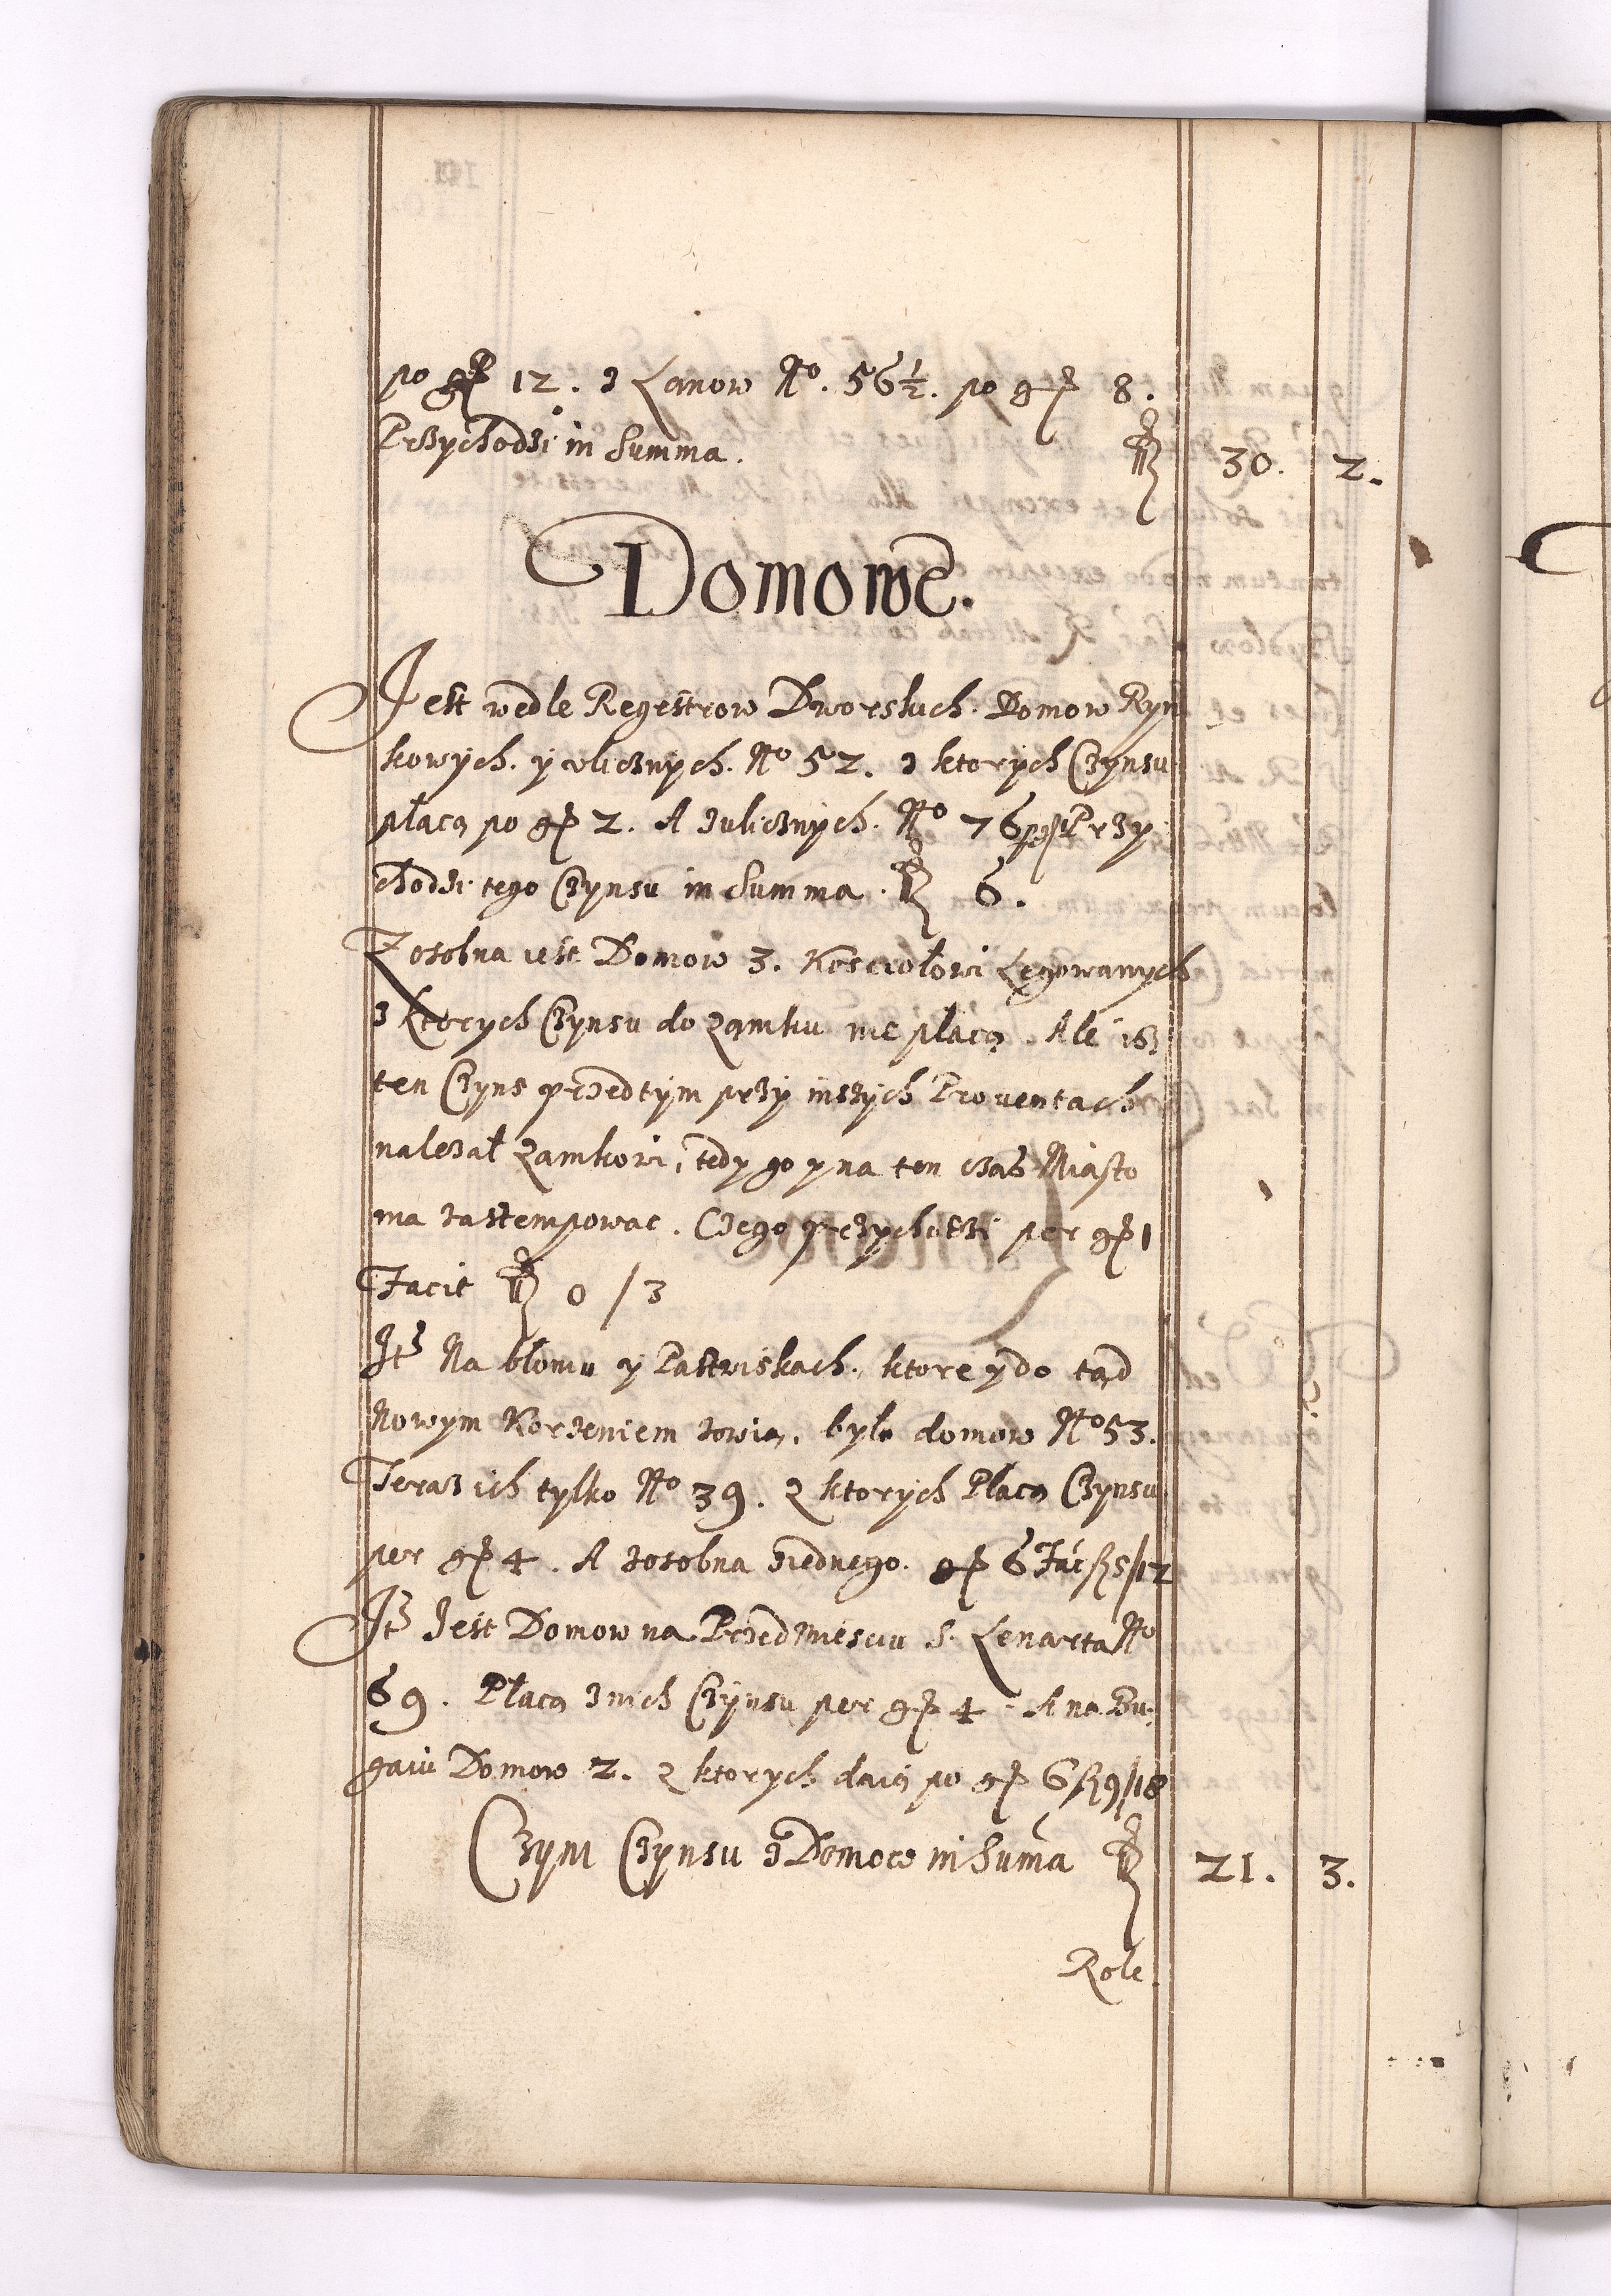 po gr 12. z Lanow No. 56½. po gr 8.
Przychodzi in Summa. fl 30. 2.
Domowe.
Jest wedle Regestrow Dworskich Domow Ryn
kowych. y vlicznych. No 52. z ktorych Czynsu
płacą po gr 2. A zulicznych. No 76 Przy
chodzi tego Czynsu in Summa. fl 6.
Zosobna iest Domow 3. Kosciołowi Legowanych
z ktorych Czynsu do Zamku nie płacą. Ale isz
ten Czyns przedtym przy inszych Proventach
należał Zamkowi, tedy go y na ten czas Miasto
ma zastempowac. Czego przychodzi per gr 1
Facit fl 0/3
Itẽ Na błoniu y Pastwiskach, ktore y do tąd
Nowym Korzeniem zowią, było domow No 53.
Teraz ich tylko No 39. Z ktorych Płacą Czynsu
per gr 4. A zosobna ziednego. gr 6 Fac fl 5/12
Itẽ Jest Domow na Przedmiesciu S. Lenarta No
69. Płacą znich Czynsu per gr 4. A na Bu-
gaiu Domow 2. Z ktorych daią po gr 6 fl 9/18
Czyni Czynsu z Domow in Suma fl 21. 3.
Role.